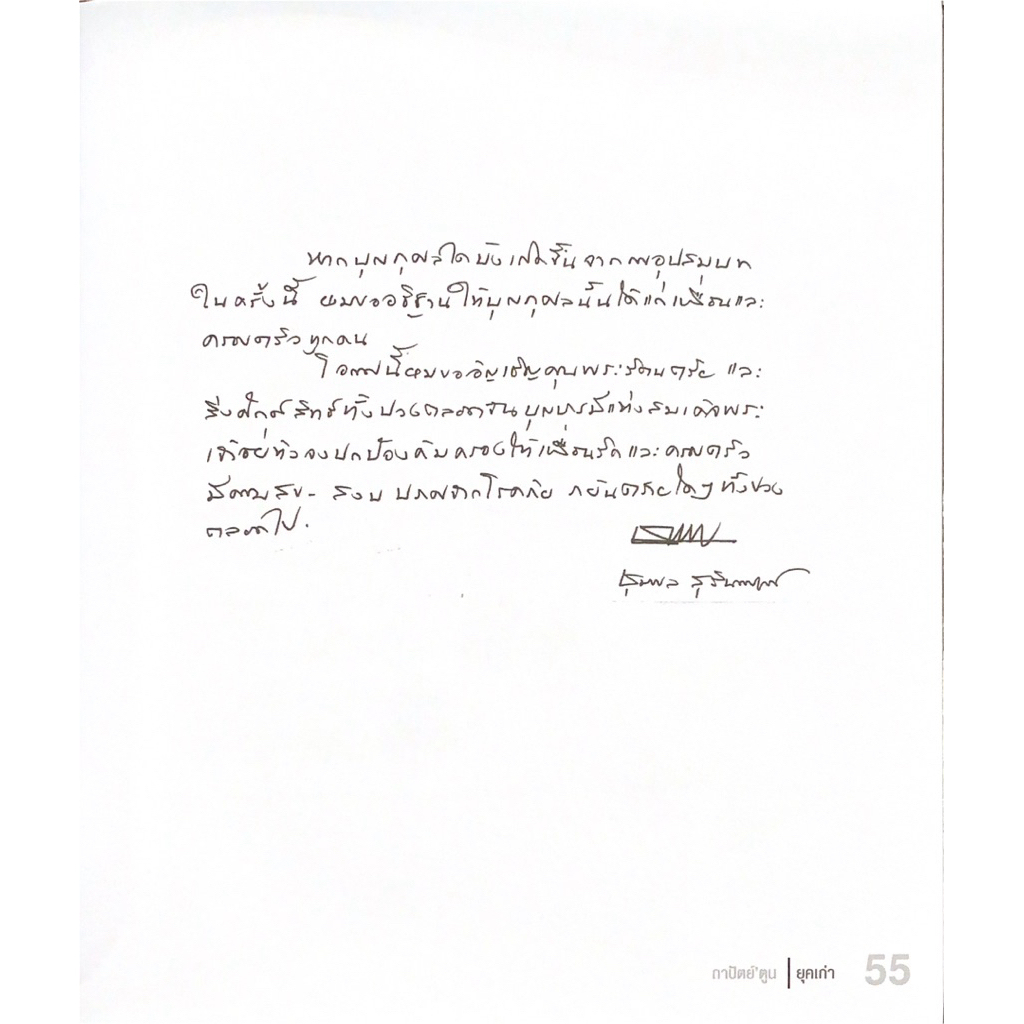 หากบุญกุศลใดบังเกิดขึ้นจากการอุปสมบท
ในครั้งนี้ ผมขออธิฐานให้บุญกุศลนั้นได้แก่เพื่อนและ
ครอบครัวทุกคน
โอกาสนี้ผมขออัญเชิญคุณพระรัตนตรัย และ
สิ่งศักดิ์สิทธิ์ทั้งปวงตลอดจนบุญบารมีแห่งสมเด็จพระ
เจ้าอยู่หัวจงปกป้องคุ้มครองให้เพื่อนรักและครอบครัว
มีความสุข - สงบ ปราศจากโรคภัย ภยันตรายใดๆ ทั้งปวง
ตลอดไป.
ชุมพล
ถาปัตย์'ตูน | ยุคเก่า 55